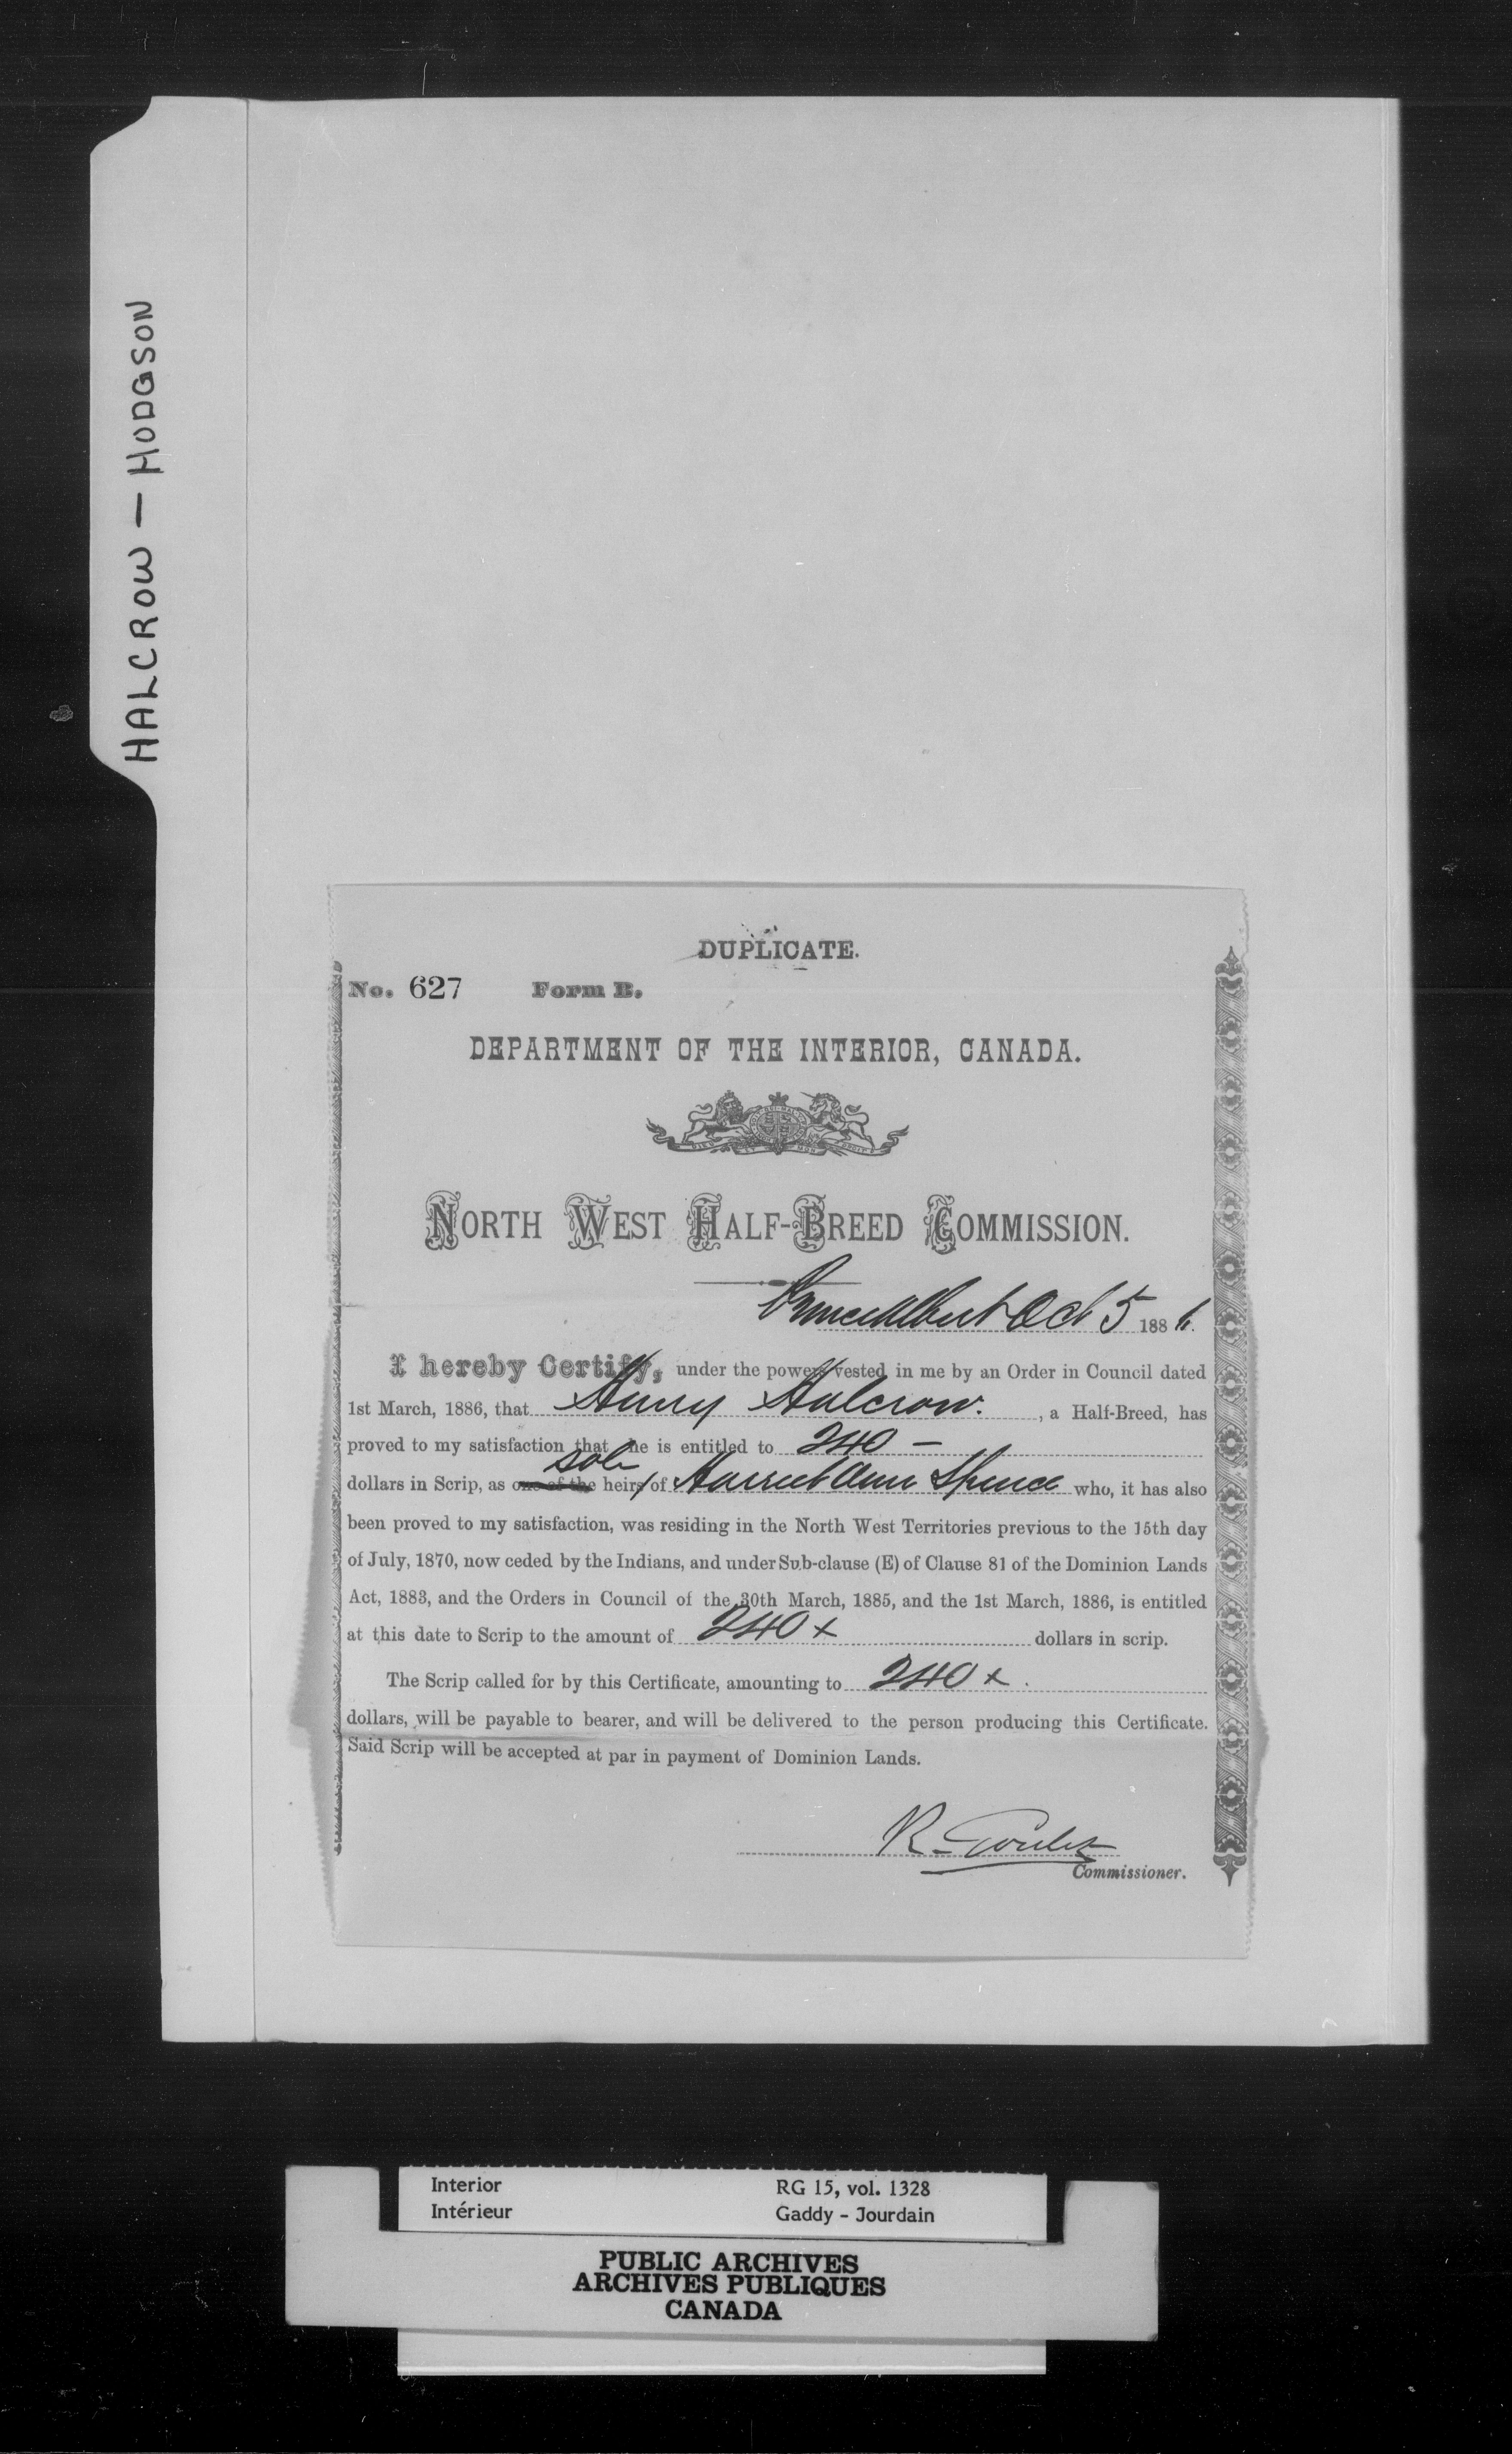 HALCROW — HODGSON
DUPLICATE.
No. 627 Form B.
DEPARTMENT OF THE INTERIOR, CANADA.
NORTH WEST HALF-BREED COMMISSION.
Prince Albert Oct 5 1886.
I hereby Certify, under the powers vested in me by an Order in Council dated
1st March, 1886, that Henry Halcrow. , a Half-Breed, has
proved to my satisfaction that he is entitled to 240 —
sole
dollars in Scrip, as one of the heirs of Harriet Ann Spence who, it has also
been proved to my satisfaction, was residing in the North West Territories previous to the 15th day
of July, 1870, now ceded by the Indians, and under Sub-clause (E) of Clause 81 of the Dominion Lands
Act, 1883, and the Orders in Council of the 30th March, 1885, and the 1st March, 1886, is entitled
at this date to Scrip to the amount of 240 x dollars in scrip.
The Scrip called for by this Certificate, amounting to 240 x .
dollars, will be payable to bearer, and will be delivered to the person producing this Certificate.
Said Scrip will be accepted at par in payment of Dominion Lands.
R. Goulet
Commissioner.
Interior RG 15, vol. 1328
Intérieur Gaddy - Jourdain
PUBLIC ARCHIVES
ARCHIVES PUBLIQUES
CANADA